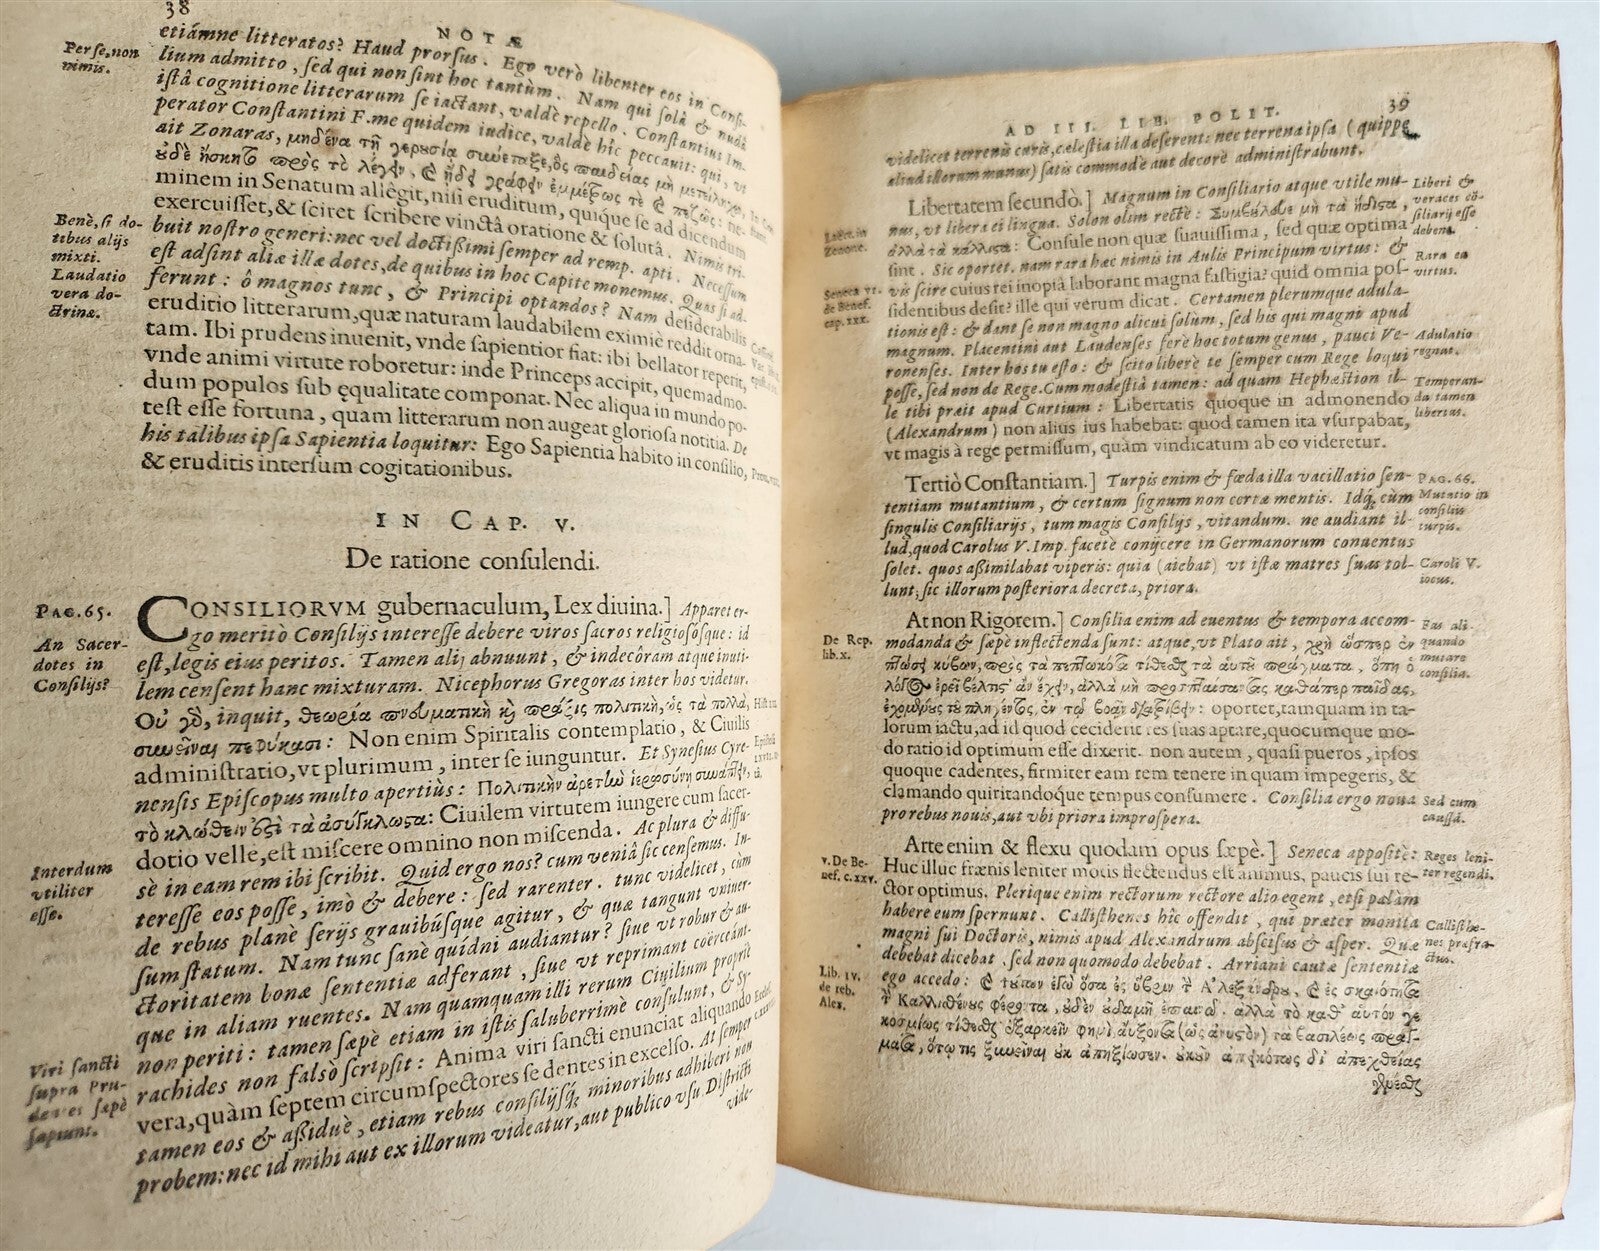 38
NOTÆ
etiámne litteratos? Haud prorsus. Ego verò libenter eos in Consi-
Per se, non
nimis.
lium admitto, sed qui non sint hoc tantùm. Nam qui solâ & nudâ
istâ cognitione litterarum se iactant, valdè repello. Constantius Im-
perator Constantini F. me quidem iudice, valdè hîc peccauit: qui, vt
ait Zonaras, μηδένα τῇ γερουσία συνέταξε, ὃς παιδείας μὴ μετείληχε,
minem in Senatum allêgit, nisi eruditum, quique se ad dicendum
exercuisset, & sciret scribere vinctâ oratione & solutâ. Nimis tri-
Benè, si do-
tibus alijs
mixti.
buit nostro generi: nec vel doctißimi semper ad remp. apti. Necessum
est adsint aliæ illæ dotes, de quibus in hoc Capite monemus. Quas si ad-
Laudatio
vera do-
ctrinæ.
ferunt: ô magnos tunc, & Principi optandos? Nam desiderabilis
eruditio litterarum, quæ naturam laudabilem eximiè reddit orna-
tam. Ibi prudens inuenit, vnde sapientior fiat: ibi bellator reperit,
vnde animi virtute roboretur: inde Princeps accipit, quemadmo-
dum populos sub ęqualitate componat. Nec aliqua in mundo po-
test esse fortuna, quam litterarum non augeat gloriosa notitia. De
his talibus ipsa Sapientia loquitur: Ego Sapientia habito in consilio,
& eruditis intersum cogitationibus.
IN CAP. V.
De ratione consulendi.
PAG. 65.
CONSILIORVM gubernaculum, Lex diuina.] Apparet er-
An Sacer-
dotes in
Consilijs?
go meritò Consilijs interesse debere viros sacros religiosósque: id
est, legis eius peritos. Tamen alij abnuunt, & indecôram atque inuti-
lem censent hanc mixturam. Nicephorus Gregoras inter hos videtur.
Οὐ γὸ, inquit, θεωρία πνευματικὴ καὶ πρᾶξις πολιτικὴ, ὡς τὰ πολλὰ,
συνεῖναι πεφύκασι: Non enim Spiritalis contemplatio, & Ciuilis
administratio, vt plurimum, inter se iunguntur. Et Synesius Cyre-
nensis Episcopus multo apertiùs: Πολιτικὴν ἀρετὴν ἱερωσύνῃ συνάπτειν,
τὸ κλώθειν ἐστὶ τὰ ἀσύγκλωστα: Ciuilem virtutem iungere cum sacer-
dotio velle, est miscere omnino non miscenda. Ac plura & diffu-
Interdum
vtiliter
esse.
sè in eam rem ibi scribit. Quid ergo nos? cum veniâ sic censemus. In-
teresse eos posse, imò & debere: sed rarenter. tunc videlicet, cùm
de rebus planè serijs grauibúsque agitur, & quæ tangunt vniuer-
sum statum. Nam tunc sanè quídni audiantur? siue vt robur & au-
ctoritatem bonæ sententiæ adferant, siue vt reprimant coërceánt-
que in aliam ruentes. Nam quamquam illi rerum Ciuilium propriè
Viri sancti
supra Pru-
dentes sæpè
sapiunt.
non periti: tamen sæpè etiam in istis saluberrimè consulunt, & Sy-
rachides non falsò scripsit: Anima viri sancti enunciat aliquando
vera, quàm septem circumspectores sedentes in excelso. At semper
tamen eos & aßiduè, etiam rebus consilijsq́; minoribus adhiberi non
probem: nec id mihi aut ex illorum videatur, aut publico vsu Districti
vide-
39
AD III. LIB. POLIT.
videlicet terrenis curis, cælestia illa deserent: nec terrena ipsa (quippe
aliud illorum munus) satis commodè aut decorè administrabunt.
Libertatem secundò.] Magnum in Consiliario atque vtile mu-
Liberi &
veraces cō-
siliarij esse
debent.
nus, vt libera ei lingua. Solon olim rectè: Συμβούλευε μὴ τὰ ἥδιστα,
Laërt. in
Zenone.
ἀλλὰ τὰ κάλλιστα: Consule non quæ suauissima, sed quæ optima
sint. Sic oportet. nam rara hæc nimis in Aulis Principum virtus: &
Rara ea
virtus.
vis scire cuius rei inopiâ laborant magna fastigia? quid omnia pos-
Seneca VI.
de Benef.
cap. XXX.
sidentibus desit? ille qui verum dicat. Certamen plerumque adula-
tionis est: & dant se non magno alicui solum, sed his qui magni apud
magnum. Placentini aut Laudenses ferè hoc totum genus, pauci Ve-
Adulatio
regnat.
ronenses. Inter hos tu esto: & scito liberè te semper cum Rege loqui
posse, sed non de Rege. Cum modestiâ tamen: ad quam Hephæstion il-
Temperan-
da tamen
libertas.
le tibi præit apud Curtium: Libertatis quoque in admonendo
(Alexandrum) non alius ius habebat: quod tamen ita vsurpabat,
vt magis à rege permissum, quàm vindicatum ab eo videretur.
Tertiò Constantiam.] Turpis enim & fœda illa vacillatio sen-
PAG. 66.
Mutatio in
consiliis
turpis.
tentiam mutantium, & certum signum non certæ mentis. Idq́; cùm
singulis Consiliarijs, tum magis Consilijs, vitandum. ne audiant il-
lud, quod Carolus V. Imp. facetè conijcere in Germanorum conuentus
solet. quos aßimilabat viperis: quia (aiebat) vt istæ matres suas tol-
Caroli V.
iocus.
lunt, sic illorum posteriora decreta, priora.
At non Rigorem.] Consilia enim ad euentus & tempora accom-
Fas ali-
quando
mutare
consilia.
De Rep.
lib. X.
modanda & sæpè inflectenda sunt: atque, vt Plato ait, χρὴ ὥσπερ ἐν
πτώσει κύβων, πρὸς τὰ πεπτωκότα τίθεσθαι τὰ αὑτῶ πράγματα, ὅπῃ ὁ
λόγος ἐρεῖ βέλτιστ' ἂν ἔχειν, ἀλλὰ μὴ προσπταίσαντας καθάπερ παῖδας,
ἐχομένους τοῦ πληγέντος, ἐν τῷ βοᾶν διατρίβειν: oportet, tamquam in ta-
lorum iactu, ad id quod ceciderit res suas aptare, quocumque mo-
do ratio id optimum esse dixerit. non autem, quasi pueros, ipsos
quoque cadentes, firmiter eam rem tenere in quam impegeris, &
clamando quiritandoque tempus consumere. Consilia ergo noua
Sed cum
caussâ.
pro rebus nouis, aut vbi priora improspera.
Arte enim & flexu quodam opus sæpè.] Seneca appositè:
Reges leni-
ter regendi.
v. De Be-
nef. c. XXV.
Huc illuc frænis leniter motis flectendus est animus, paucis sui re-
ctor optimus. Plerique enim rectorum rectore alio egent, etsi palàm
habere eum spernunt. Callisthenes hîc offendit, qui præter monita
Callisthe-
nes præfra-
ctus.
magni sui Doctoris, nimis apud Alexandrum abscisus & asper. Quæ
debebat dicebat, sed non quomodo debebat. Arriani cautæ sententiæ
Lib. IV.
de reb.
Alex.
ego accedo:
κοσμίως τίθεσθαι ἐξαρκεῖν φημὶ αὔξοντα (ὡς ἀνυστὸν) τὰ βασιλέως πράγ-
ματα, ὅτῳ τις ξυνεῖναι οὐκ ἀπηξίωσεν. οὔκουν ἀπεικότως δι' ἀπεχθείας
γενέσθαι